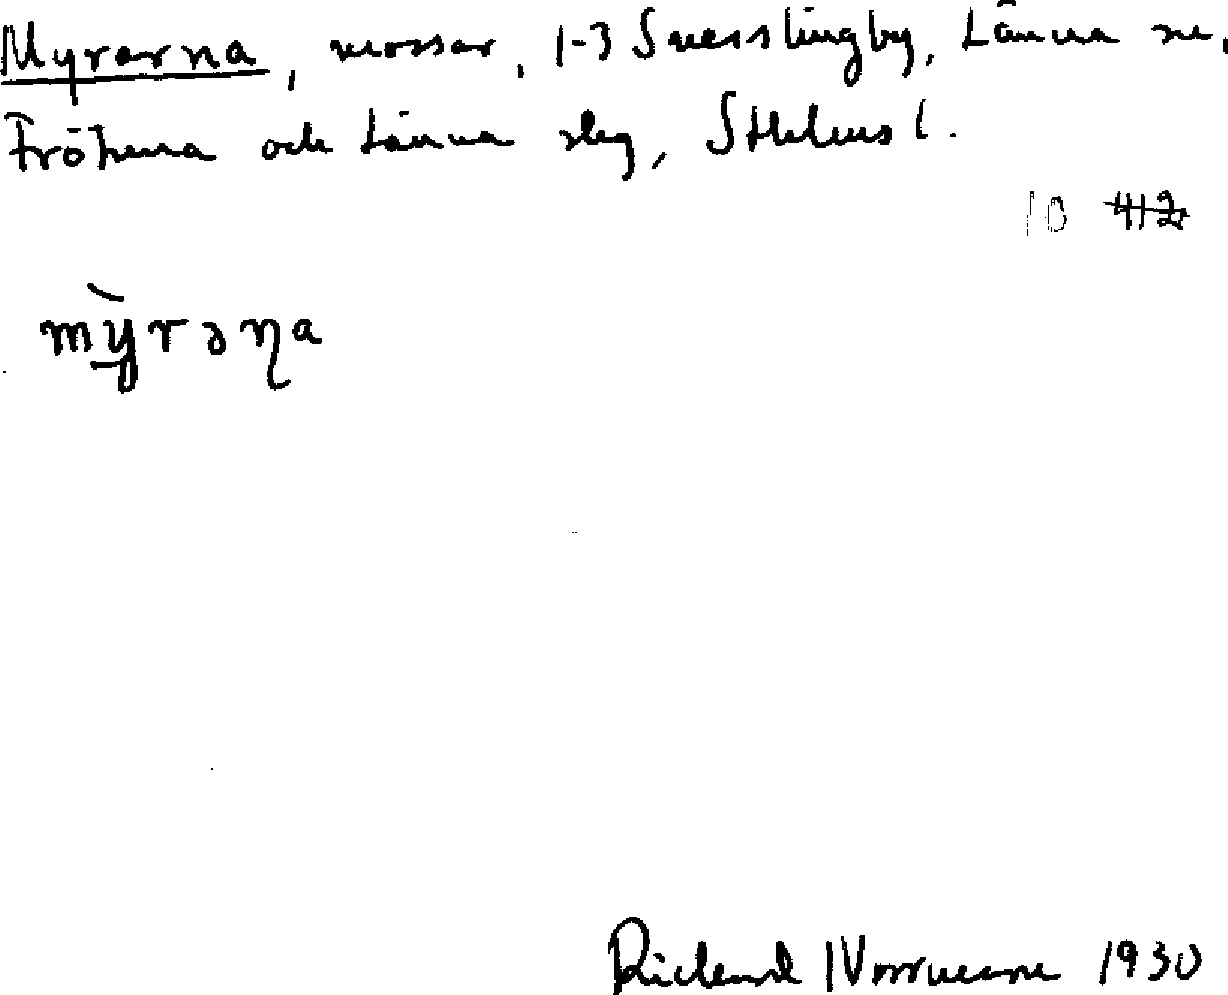 Myrarna, mossar, 1-3 Smesslingby, Länna sn,
Fröhuna och Länna slg, Sthlms l.
10 412
mỳrəṇa
Rickard Wornmann 1930